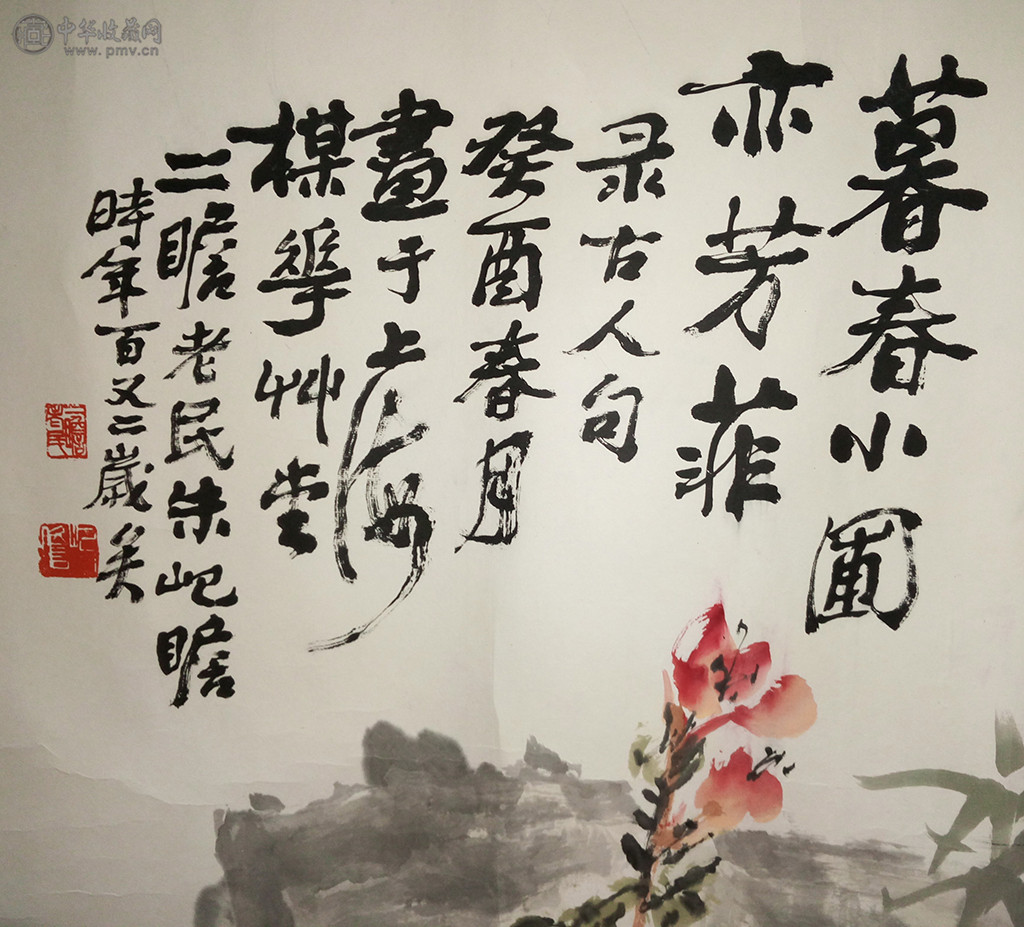 暮春小圃
亦芳菲
录古人句
癸酉春月
畫于上海
楳華艸堂
二瞻老民朱屺瞻
時年百又二歲矣
二瞻老民
屺瞻
中华收藏网
www.pmv.cn